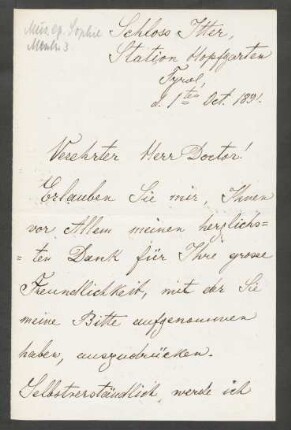 Schloss Itter,
Station Hopfgarten
Tyrol,
d. 1ten Oct. 1891.
Verehrter Herr Doctor!
Erlauben Sie mir, Ihnen
vor Allem meinen herzlichs=
=ten Dank für Ihre grosse
Freundlichkeit, mit der Sie
meine Bitte aufgenommen
haben, auszudrücken.
Selbstverständlich, werde ich